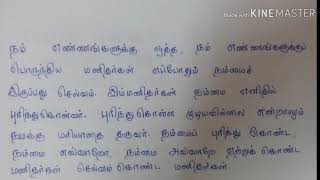 Made with KINEMASTER
நம் எண்ணங்களுக்கு ஏத்த, நம் எண்ணங்களுக்குப்
பொருந்திய மனிதர்கள் எப்போதும் நம்மைச்
இருப்பது செல்வம். இம்மனிதர்கள் நம்மை எளிதில்
புரிந்துகொள்வர். புரிந்துகொள்ள முடியவில்லை என்றாலும்
நமக்கு மரியாதை தருவர். நம்மைப் புரிந்து கொண்ட,
நம்மை எவ்வாறோ நம்மை அவ்வாறே ஏற்றுக் கொண்ட
மனிதர்கள் செல்வம் கொண்ட மனிதர்கள்.